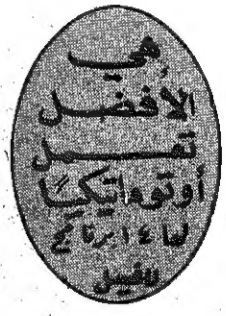 هي
الأفضل
تعمل
أوتوماتيكيًا
لها ١٤ برنامج
للغسيل